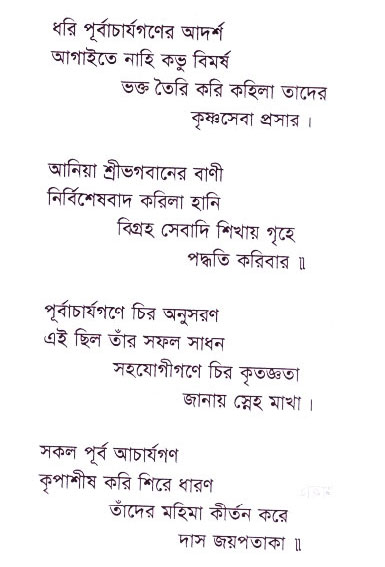 ধরি পূর্বাচার্যগণের আদর্শ
আগাইতে নাহি কভু বিমর্ষ
ভক্ত তৈরি করি কহিলা তাদের
কৃষ্ণসেবা প্রসার ।
আনিয়া শ্রীভগবানের বাণী
নির্বিশেষবাদ করিলা হানি
বিগ্রহ সেবাদি শিখায় গৃহে
পদ্ধতি করিবার ॥
পূর্বাচার্যগণে চির অনুসরণ
এই ছিল তাঁর সফল সাধন
সহযোগীগণে চির কৃতজ্ঞতা
জানায় স্নেহ মাখা ।
সকল পূর্ব আচার্যগণ
কৃপাশীষ করি শিরে ধারণ
তাঁদের মহিমা কীর্তন করে
দাস জয়পতাকা ॥